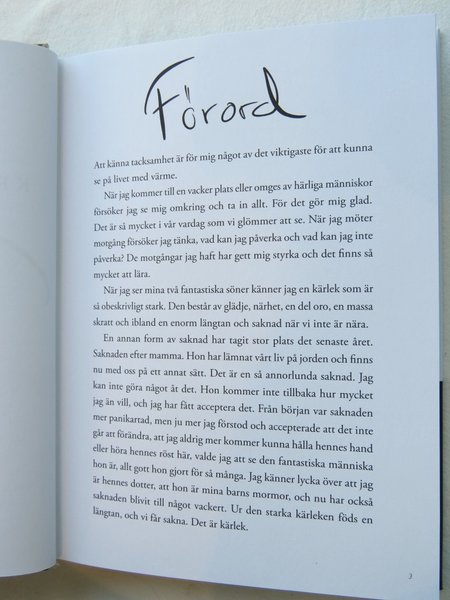 Förord
Att känna tacksamhet är för mig något av det viktigaste för att kunna
se på livet med värme.
När jag kommer till en vacker plats eller omges av härliga människor
försöker jag se mig omkring och ta in allt. För det gör mig glad.
Det är så mycket i vår vardag som vi glömmer att se. När jag möter
motgång försöker jag tänka, vad kan jag påverka och vad kan jag inte
påverka? De motgångar jag haft har gett mig styrka och det finns så
mycket att lära.
När jag ser mina två fantastiska söner känner jag en kärlek som är
så obeskrivligt stark. Den består av glädje, närhet, en del oro, en massa
skratt och ibland en enorm längtan och saknad när vi inte är nära.
En annan form av saknad har tagit stor plats det senaste året.
Saknaden efter mamma. Hon har lämnat vårt liv på jorden och finns
nu med oss på ett annat sätt. Det är en så annorlunda saknad. Jag
kan inte göra något åt det. Hon kommer inte tillbaka hur mycket
jag än vill, och jag har fått acceptera det. Från början var saknaden
mer panikartad, men ju mer jag förstod och accepterade att det inte
går att förändra, att jag aldrig mer kommer kunna hålla hennes hand
eller höra hennes röst här, valde jag att se den fantastiska människa
hon är, allt gott hon gjort för så många. Jag känner lycka över att jag
är hennes dotter, att hon är mina barns mormor, och nu har också
saknaden blivit till något vackert. Ur den starka kärleken föds en
längtan, och vi får sakna. Det är kärlek.
3